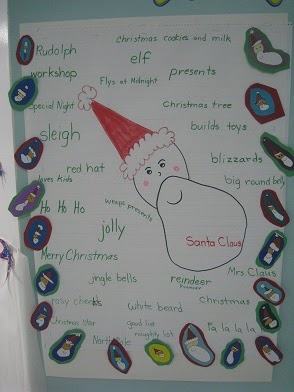 Christmas cookies and milk
Rudolph
elf
workshop
Flys at Midnight
presents
Special Night
Christmas tree
sleigh
builds toys
red hat
blizzards
loves Kids
big round belly
Ho Ho Ho
wraps presents
jolly
Santa Claus
Merry Christmas
jingle bells
reindeer
Mrs. Claus
rosy cheeks
white beard
Christmas
Christmas Star
good list
naughty list
Fa la la la
North Pole